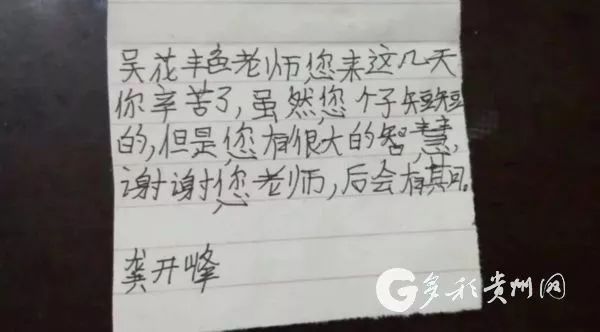 吴花艳老师您来这几天
你辛苦了，虽然您个子短短
的，但是您有很大的智慧，
谢谢您老师，后会有期。
龚开峰
多彩贵州网